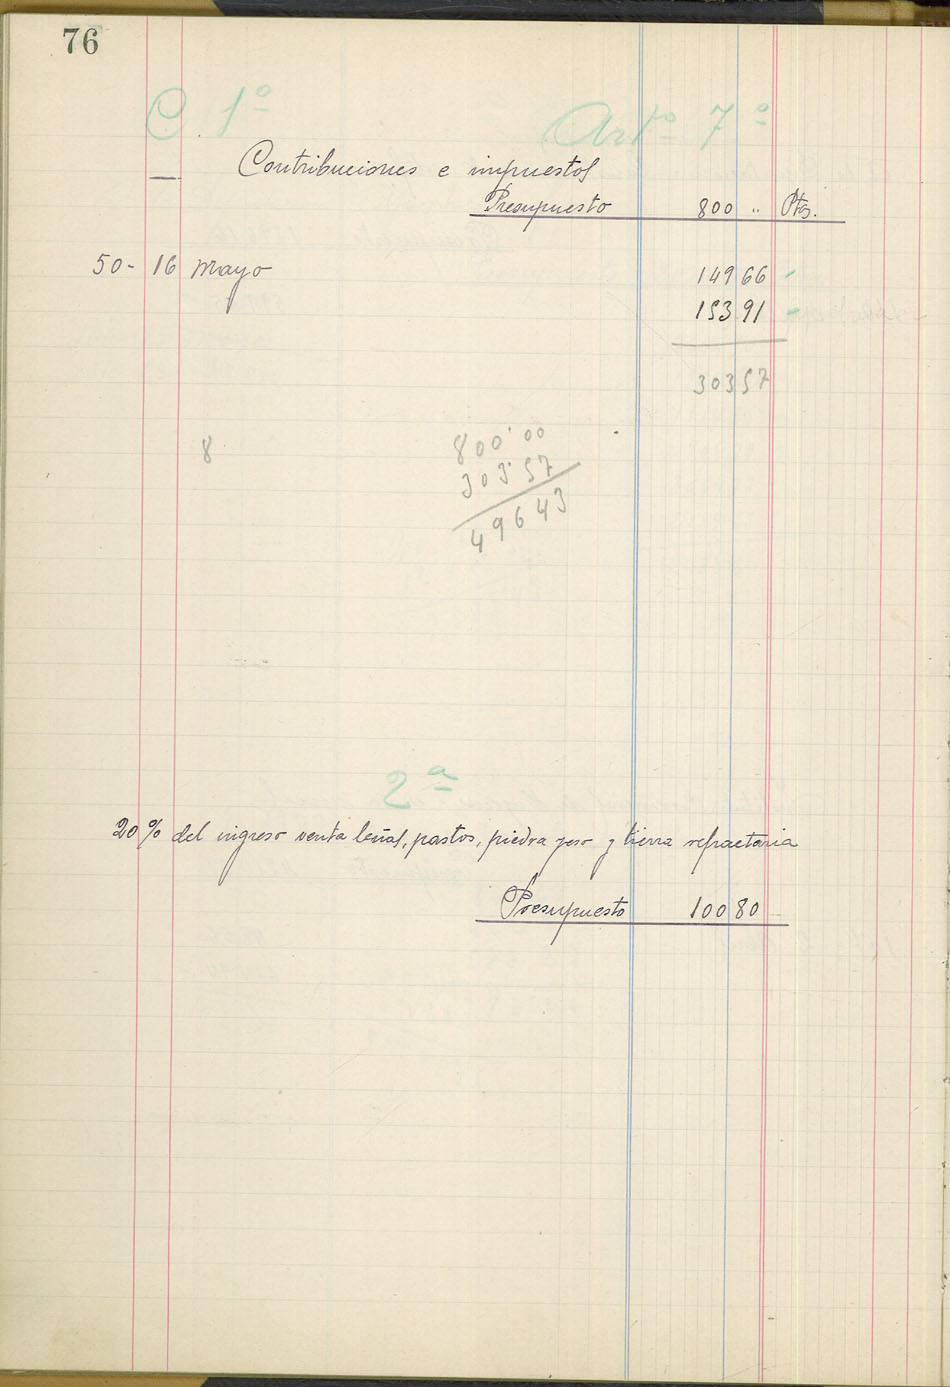 76
C 1º Artº 7º
Contribuciones e impuestos
Presupuesto 800 " Pts.
50- 16 Mayo 149 66 -
153 91 -
303 57
8 800'00
303'57
49643
2ª
20% del ingreso venta leñas, pastos, piedra yeso y tierra refractaria
Presupuesto 100 80